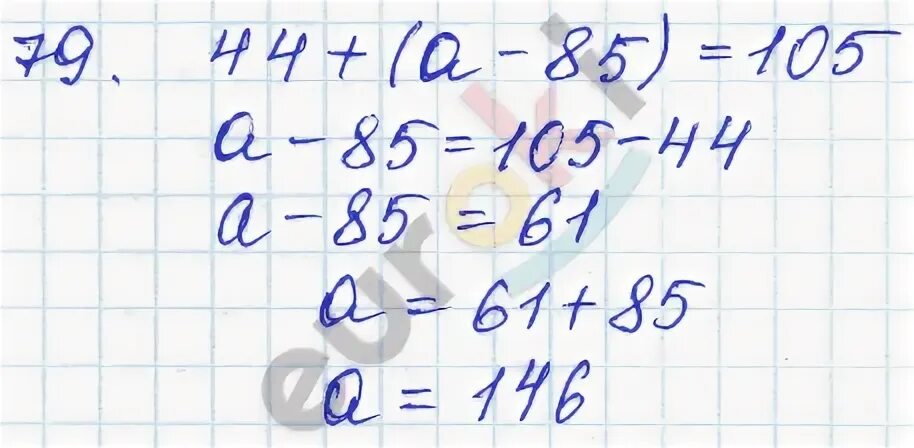 79. 44 + (a - 85) = 105
a - 85 = 105 - 44
a - 85 = 61
a = 61 + 85
a = 146
euroki